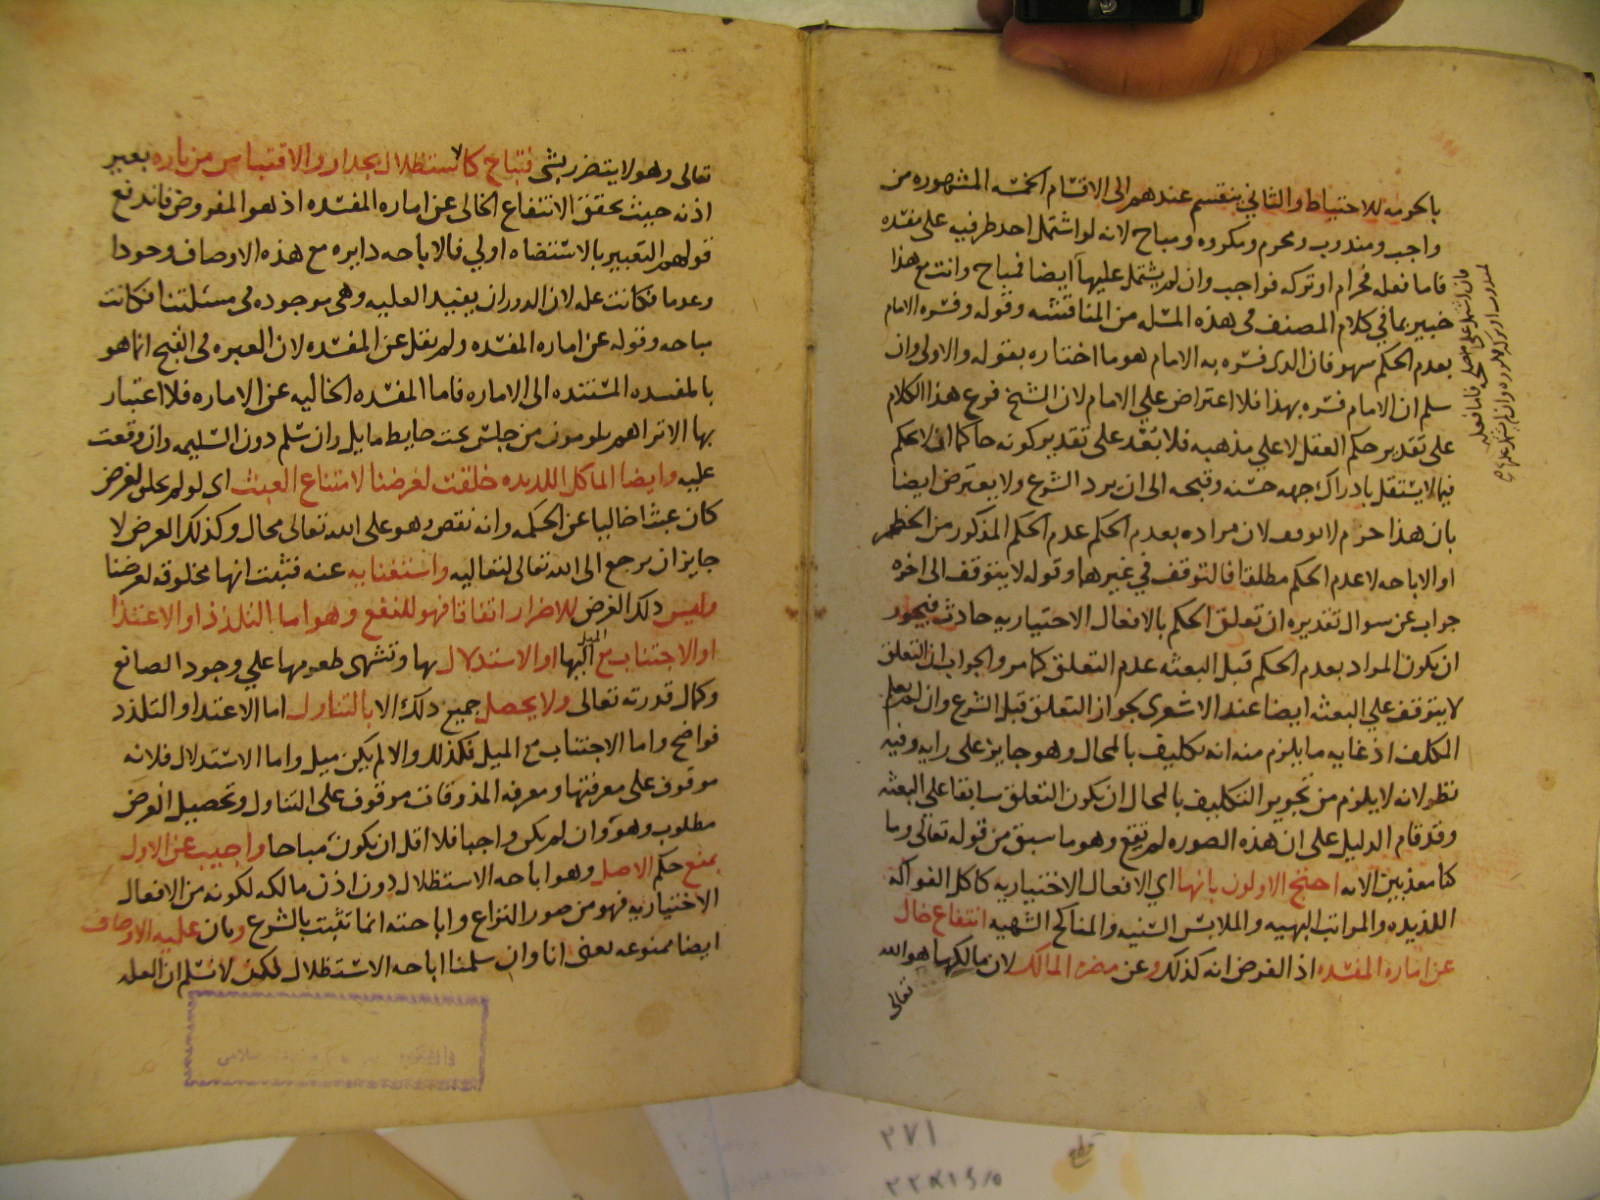 بالحرمه للاحتياط والثاني ينقسم عندهم الى الاقسام الخمسه المشهوره من
واجب ومندوب ومحرم ومكروه ومباح لانه لو اشتمل احد طرفيه على مفسده
فاما فعله فحرام او تركه فواجب وان لم يشتمل عليها ايضا فمباح وانت مع هذا
خبير بما في كلام المصنف في هذه المسله من المناقشه وقوله وفسره الامام
بعدم الحكم سهو فان الذى فسره به الامام هو ما اختاره بقوله والاولى وان
سلم ان الامام فسره بهذا فلا اعتراض علي الامام لان الشيخ فرع هذا الكلام
على تقدير حكم العقل لا علي مذهبه فلا بعد على تقدير كونه حاكما ان لا يحكم
فيما لا يستقل بادراك جهه حسنه وقبحه الى ان يرد الشرع ولا يعترض ايضا
بان هذا جزم لا توقف لان مراده بعدم الحكم عدم الحكم المذكور من الحظر
او الاباحه لا عدم الحكم مطلقا فالتوقف في غيرهما وقوله لا يتوقف الى اخره
جواب عن سوال تقديره ان تعلق الحكم بالافعال الاختياريه حادث فيجوز
ان يكون المراد بعدم الحكم قبل البعثه عدم التعلق كما مر والجواب ان التعلق
لا يتوقف علي البعثه ايضا عند الاشعرى بجواز التعلق قبل الشرع وان لم يعلم
المكلف اذ غايه ما يلزم منه انه تكليف بالمحال وهو جايز على رايه وفيه
نظر لانه لا يلزم من تجويز التكليف بالمحال ان يكون التعلق سابقا علي البعثه
وقد قام الدليل على ان هذه الصوره لم تقع وهو ما سبق من قوله تعالى وما
كنا معذبين الايه احتج الاولون بانها اي الافعال الاختياريه كاكل الفواكه
اللذيذه والمراتب البهيه والملابس السنيه والمناكح الشهيه انتفاع خال
عن اماره المفسده اذ الفرض انه كذلك وعن مضره المالك لان مالكها هو الله
تعالى
تعالى وهو لا يتضرر بشي فتباح كالاستظلال بجدار والاقتباس من ناره بغير
اذنه حيث تحقق الانتفاع الخالى عن اماره المفسده اذ هو المفروض فاندفع
قولهم التعبير بالاستضاه اولي فالاباحه دايره مع هذه الاوصاف وجودا
وعدما فكانت عله لان الدوران يفيد العليه وهى موجوده في مسئلتنا فكانت
مباحه وقوله عن اماره المفسده ولم يقل عن المفسده لان العبره في القبح انما هو
بالمفسده المستنده الى الاماره فاما المفسده الخاليه عن الاماره فلا اعتبار
بها الا تراهم يلومون من جلس تحت حايط مايل وان سلم دون السليم وان وقعت
عليه وايضا الماكل اللذيذه خلقت لغرضنا لامتناع العبث اى لو لم يخلق لغرض
كان عبثا خاليا عن الحكمه وانه نقص وهو على الله تعالى محال وكذلك الغرض لا
جايز ان يرجع الى الله تعالى لتعاليه واستغنايه عنه فثبت انها مخلوقه لغرضنا
وليس ذلك الغرض للاضرار اتفاقا فهو للنفع وهو اما التلذذ او الاغتذا
او الاجتناب مع الميل اليها او الاستدلال بها وتشهى طعومها علي وجود الصانع
وكمال قدرته تعالى ولا يحصل جميع ذلك الا بالتناول اما الاغتدا والتلذذ
فواضح واما الاجتناب مع الميل فكذلك والا لم يكن ميل واما الاستدلال فلانه
موقوف على معرفتها ومعرفه المذوقات موقوف على التناول وتحصيل الغرض
مطلوب وهو وان لم يكن واجبا فلا اقل ان يكون مباحا واجيب عن الاول
بمنع حكم الاصل وهو اباحه الاستظلال دون اذن مالكه لكونه من الافعال
الاختياريه فهو من صور النزاع واباحته انما تثبت بالشرع وبان عليه الاوصاف
ايضا ممنوعه يعنى انا وان سلمنا اباحه الاستظلال لكن لا نسلم ان العله
٢٧١